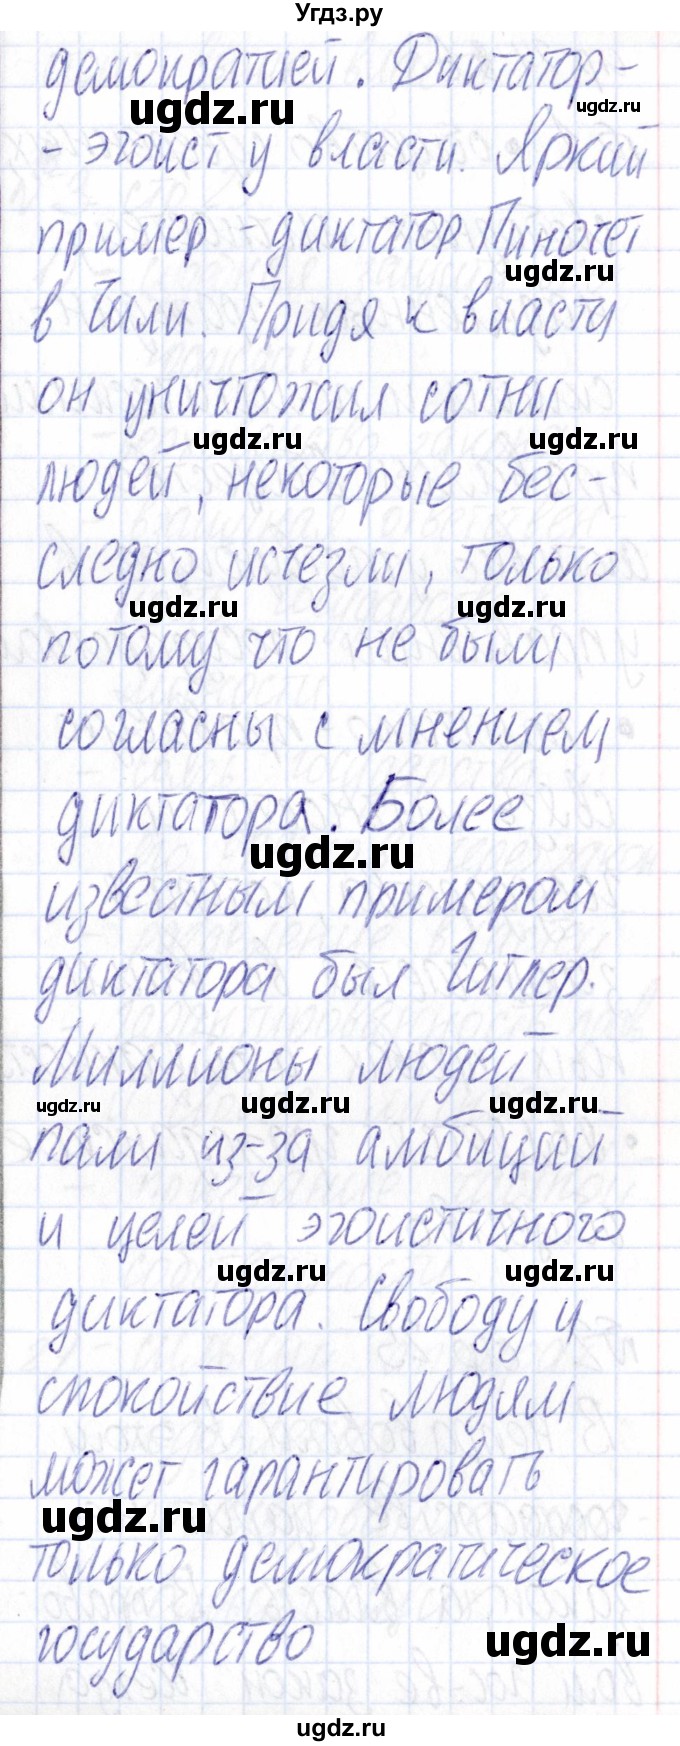 Угдз.ру
демократией. Диктатор-
ugdz.ru ugdz.ru
- эгоист у власти. Яркий
пример - диктатор Пиночет
ugdz.ru
в Чили. Придя к власти
он уничтожил сотни
ugdz.ru ugdz.ru
людей, некоторые бес-
следно исчезли, только
ugdz.ru ugdz.ru
потому что не были
согласны с мнением
диктатора. Более
ugdz.ru
известным примером
диктатора был Гитлер.
Миллионы людей
ugdz.ru ugdz.ru ugdz.ru
пали из-за амбиций
и целей эгоистичного
ugdz.ru ugdz.ru
диктатора. Свободу и
спокойствие людям
может гарантировать
ugdz.ru
только демократическое
государство
ugdz.ru
ugdz.ru